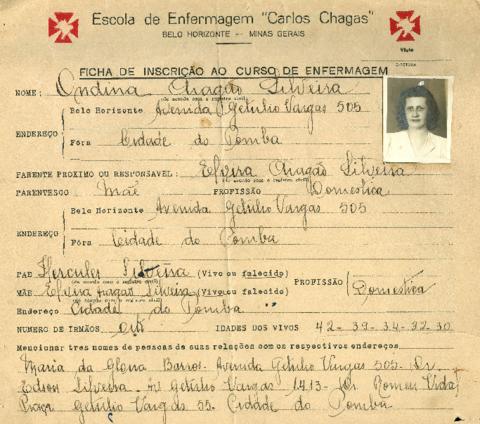 Escola de Enfermagem "Carlos Chagas"
BELO HORIZONTE -- MINAS GERAIS
Visto
DIRETORA
FICHA DE INSCRIÇÃO AO CURSO DE ENFERMAGEM
NOME: Ondina Aragão Silveira
(de acordo com o registro civil)
Belo Horizonte Avenida Getulio Vargas 505
ENDEREÇO
Fóra Cidade do Pomba
PARENTE PROXIMO OU RESPONSAVEL: Elvira Aragão Silveira
(de acordo com o registro civil)
PARENTESCO Mãe PROFISSÃO Domestica
Belo Horizonte Avenida Getulio Vargas 505
ENDEREÇO
Fóra Cidade do Pomba
PAE Hercules Silveira (Vivo ou falecido)
(de acordo com o registro civil)
PROFISSÃO Domestica
MÃE Elvira Aragão Silveira (Viva ou falecida)
(de acordo com o registro civil)
Endereço Cidade do Pomba
NUMERO DE IRMÃOS oito IDADES DOS VIVOS 42-39-34-32-30
Mencionar tres nomes de pessoas de suas relações com os respectivos endereços
Maria da Gloria Barros. Avenida Getulio Vargas 505. Dr.
Edson Silveira. Av Getulio Vargas 1413- Dr. Romeu Vidal
Praça Getulio Vargas 55. Cidade do Pomba